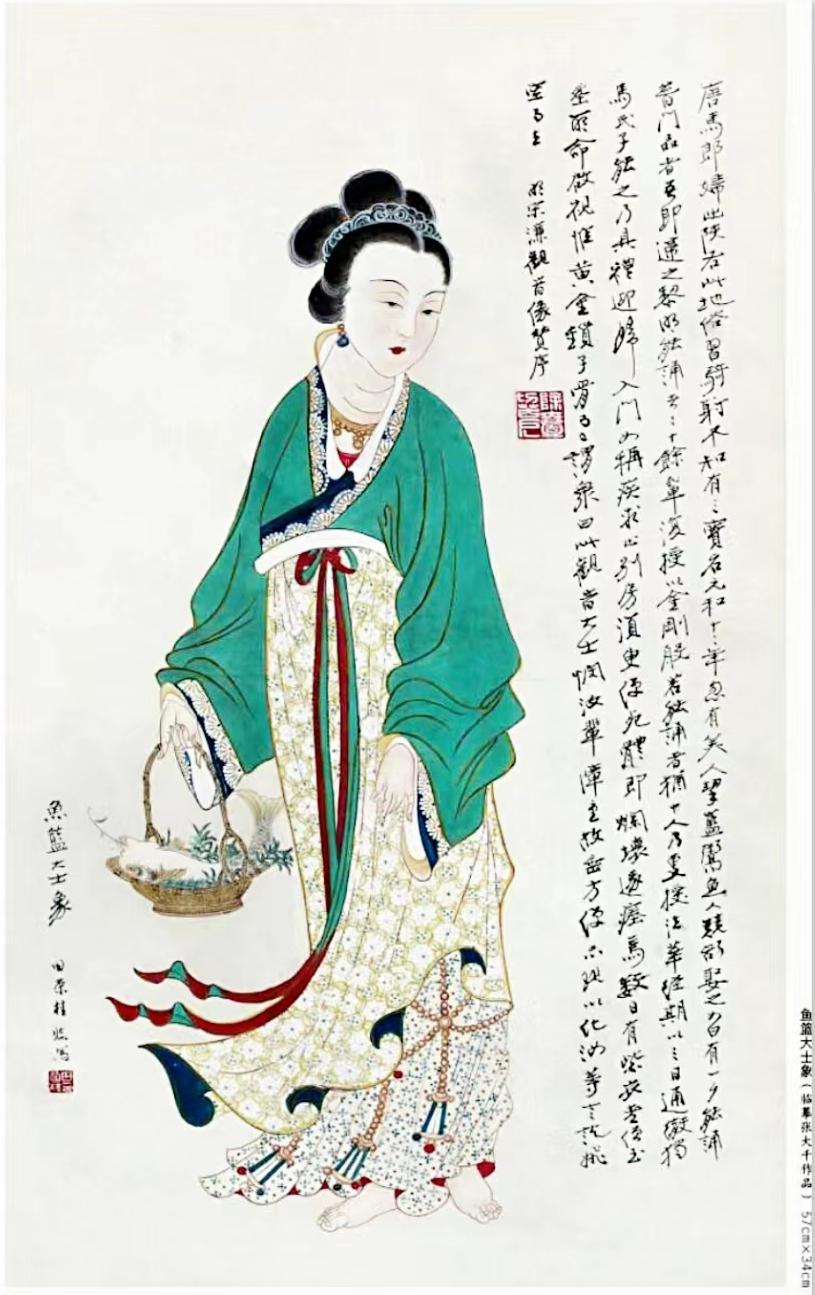 唐馬郎婦出陝右此地俗習騎射不知有三寶名元和十二年忽有美人挈籃鬻魚人競欲娶之女曰有一夕能誦
普門品者吾即適之黎明能誦者二十餘輩復授以金剛般若能誦者猶十人乃更授法華經期以三日通徹獨
馬氏子能之乃具禮迎歸入門女稱疾求止別房須臾便死體即爛壞遂瘞焉數日有紫衣老僧至
所命啟視惟黃金鎖子骨謂眾曰此觀音大士憫汝輩障重故垂方便示現以化汝等言訖飛
空而去 明宋濂觀音像贊序
魚籃大士象
田榮桂臨寫
鱼篮大士象(临摹张大千作品) 57cm×34cm